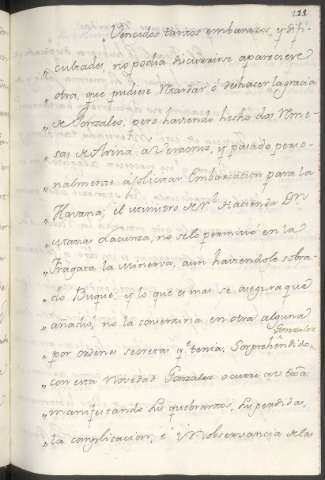 121
Vencidos tantos embarazos, y difi-
"cultades, no podia discurrirse apareciere
"otra, que pudiese retardar ó deshacer la gracia
"de Gonzales, pero haviendo hecho dos reme-
"sas de Arina a Veracruz, y pasado perso-
"nalmente à solicitar Embarcacion para la
"Havana, el ministro de Rl. Hacienda Dn.
"Lacunza, no se lo permitio en la
"Fragata la minerva, aun haviendole sobra-
"do Buque; y lo que es mas se asegura que
"añadió, no la conseguiria en otra alguna
"por ordenes secretas qe. tenia; Sorprehendido
Gonzales
"con esta novedad Gonzales ocurre à
"manifestando sus quebrantos, sus perdidas,
"la complicacion, è inobservancia de las